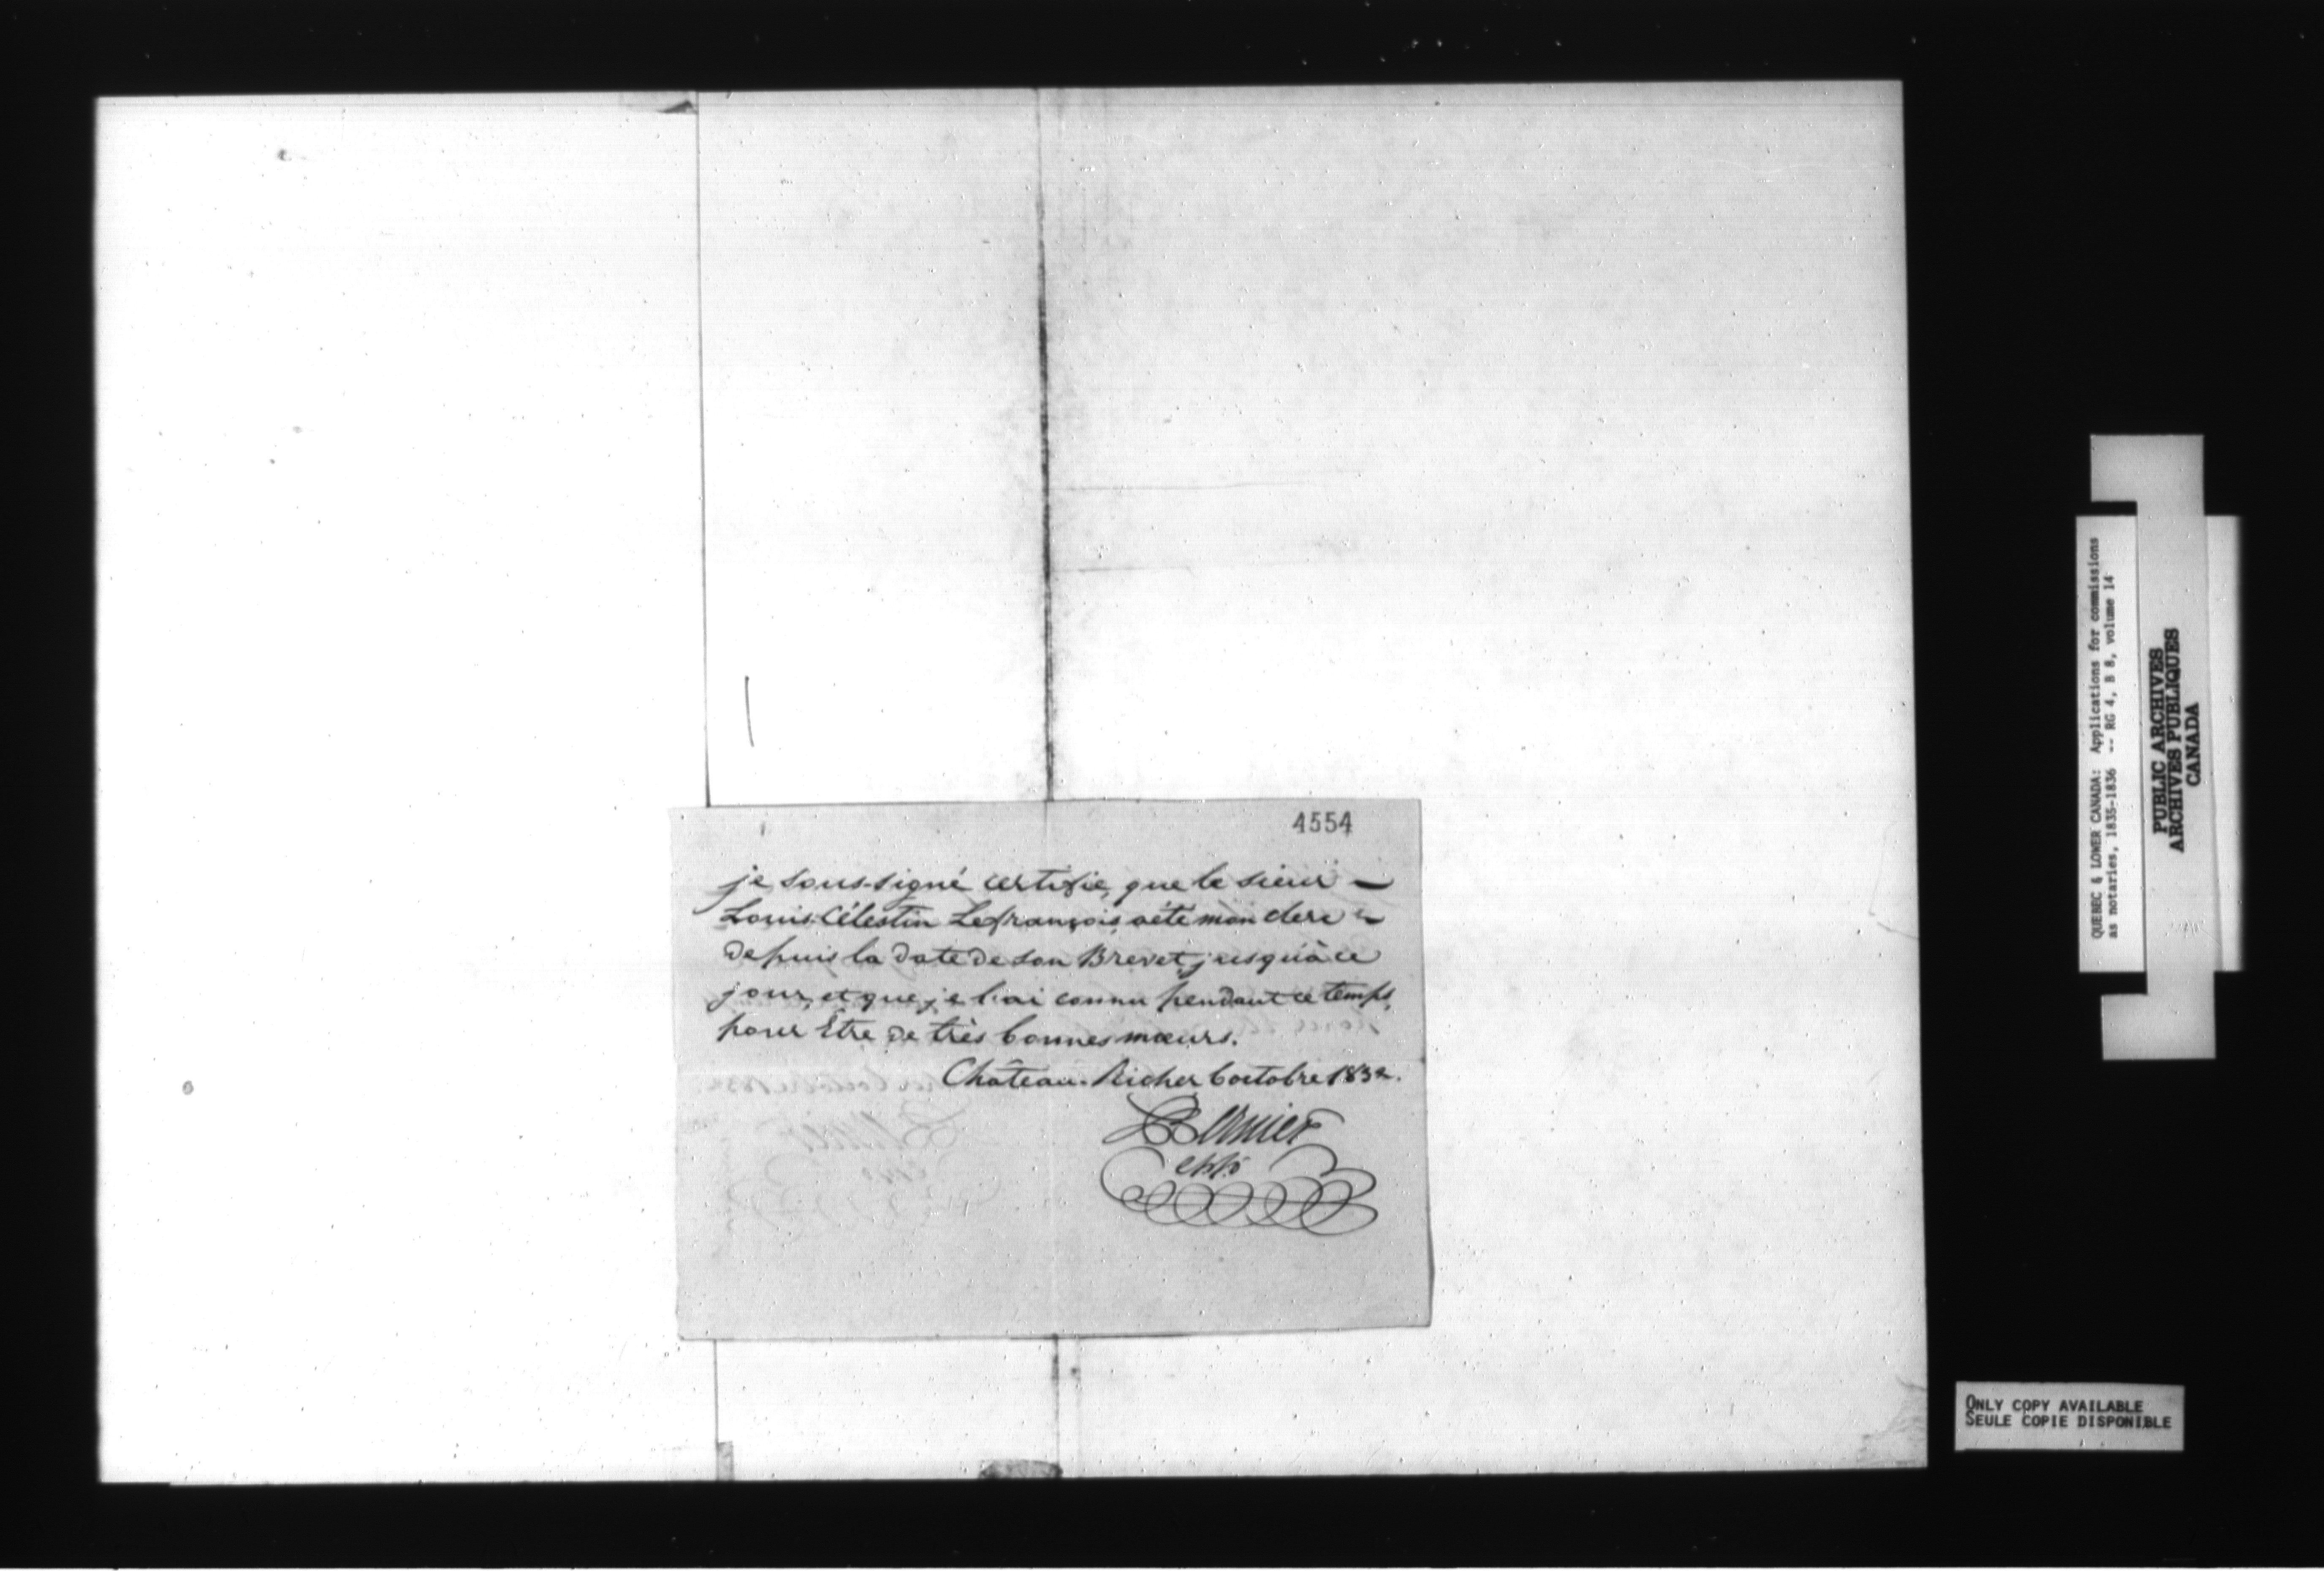 4554
je sous-signé certifie, que le sieur –
Louis-Célestin Lefrançois, a été mon clerc –
depuis la date de son Brevet, jusqu'à ce
jour, et que je l'ai connu pendant ce temps,
pour Être de très bonnes mœurs.
Château-Richer 6 octobre 1832.
Bernier
QUEBEC & LOWER CANADA: Applications for commissions
as notaries, 1835-1836 -- RG 4, B 8, volume 14
PUBLIC ARCHIVES
ARCHIVES PUBLIQUES
CANADA
ONLY COPY AVAILABLE
SEULE COPIE DISPONIBLE